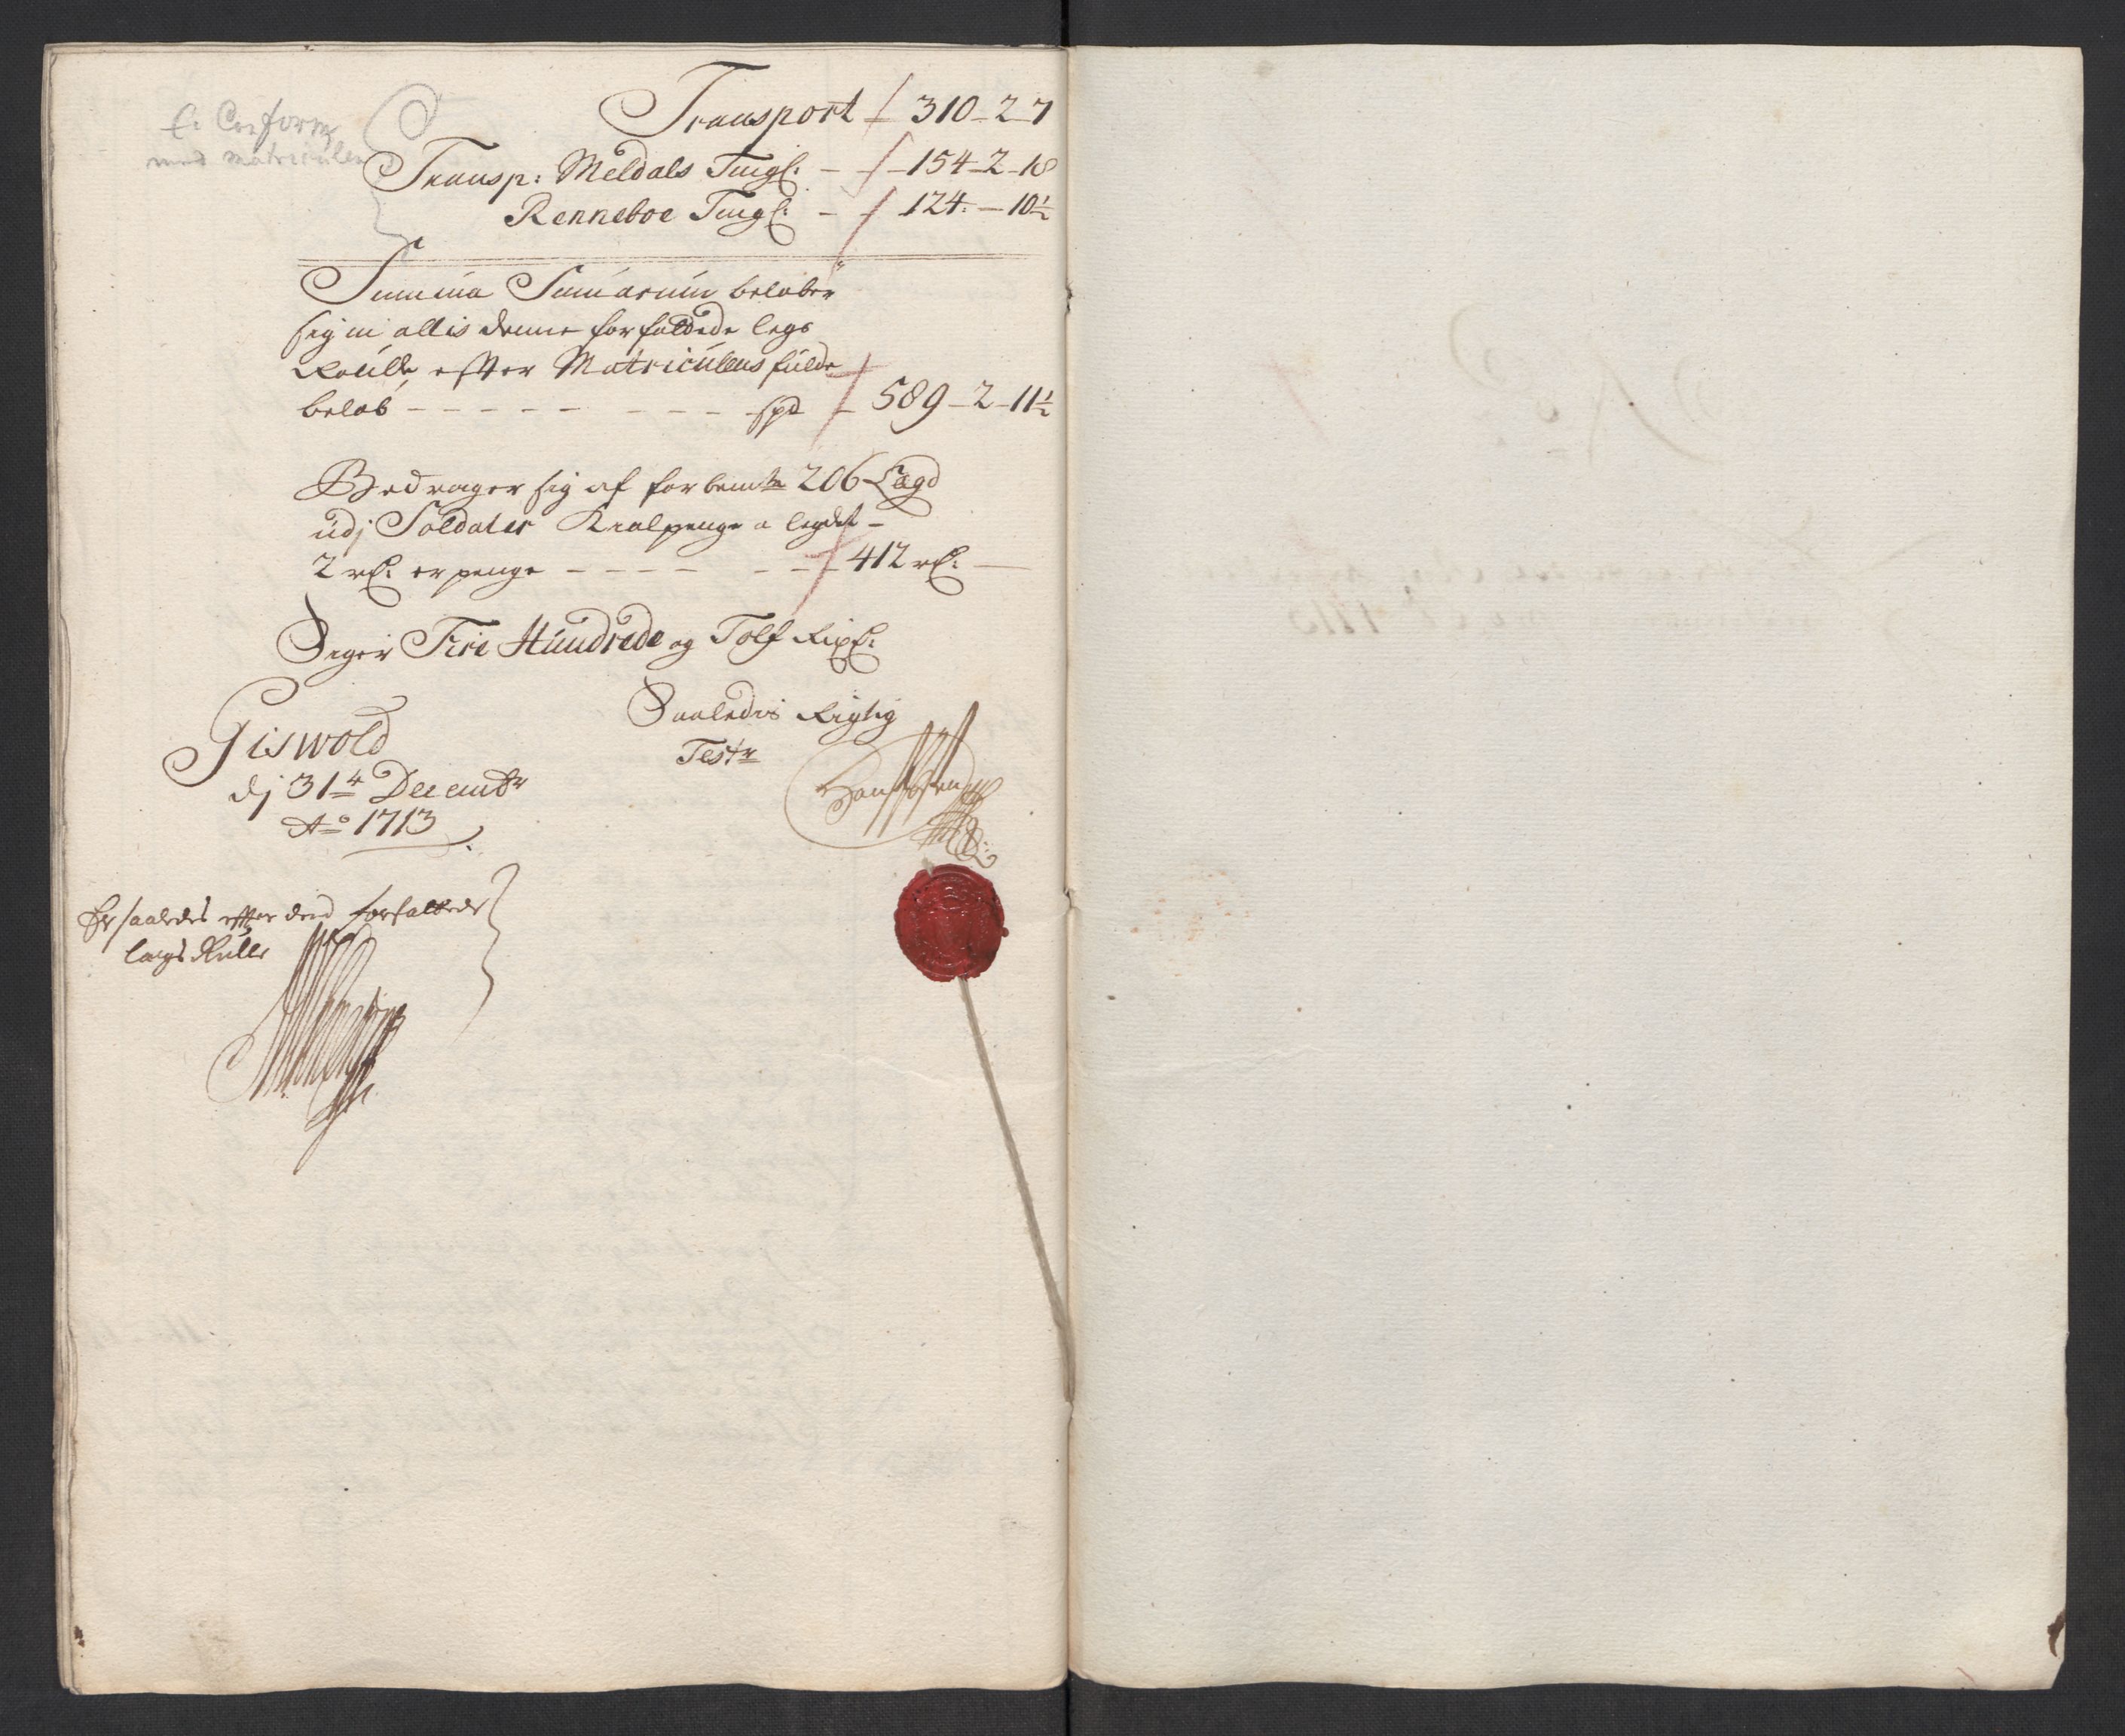 Ei Conform
med Matriculen
Transport 310 - 2 - 7
Transp: Meldals Tingl: - 154 - 2 - 18
Renneboe Tingl: - 124. - 10½
Summa Sumarum beløber
sig in alt is denne forfattede legs
Roulle, efter Matriculens fulde
beløb - - - - - - - - - spd - 589 - 2 - 11½
Bedrager sig af forbemte 206 Lægd
udj Soldater Kiolpenge a legdet -
2 rd: er penge - - - - - - 412 rd:
Siger Fire Hundrede og Tolf Rixd:
Saaledis Rigtig
Giswold
Teste
dj 31te Decembr
Ao 1713
Er saaledes efter dend forfattede
lægs Rulle